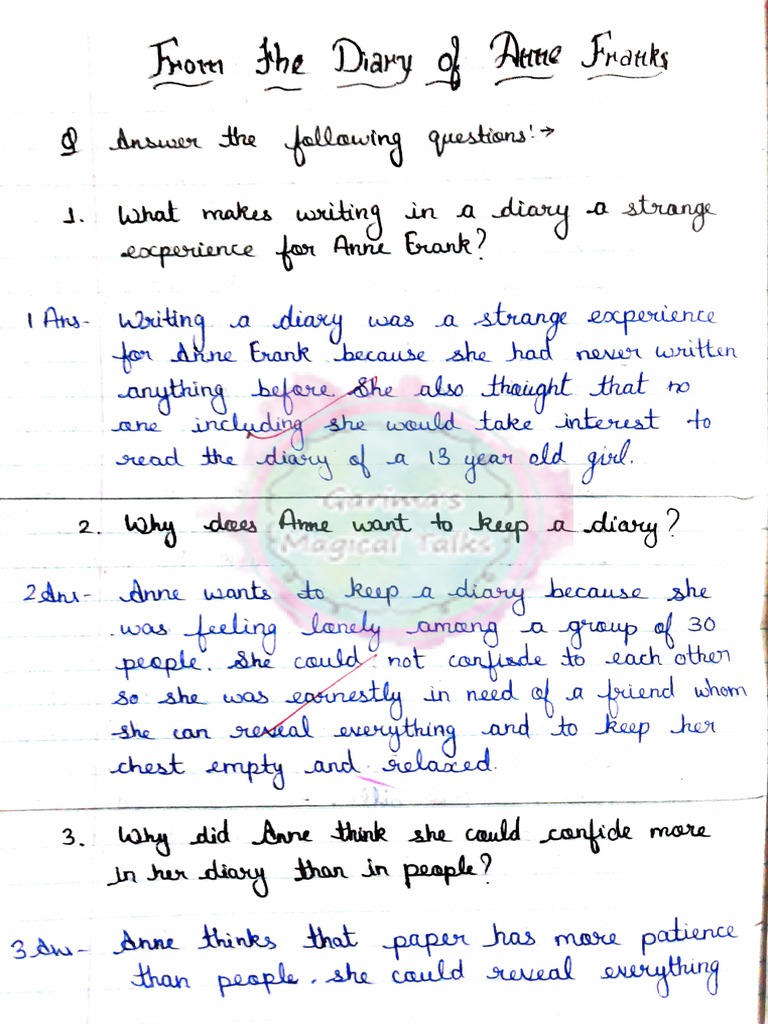 From the Diary of Anne Franks
Q Answer the following questions:→
1. What makes writing in a diary a strange
experience for Anne Frank?
1 Ans- Writing a diary was a strange experience
for Anne Frank because she had never written
anything before. She also thought that no
one including she would take interest to
read the diary of a 13 year old girl.
Garima's
Magical Talks
2. Why does Anne want to keep a diary?
2 Ans- Anne wants to keep a diary because she
was feeling lonely among a group of 30
people. She could not confide to each other
so she was earnestly in need of a friend whom
she can reveal everything and to keep her
chest empty and relaxed.
3. Why did Anne think she could confide more
in her diary than in people?
3 Ans- Anne thinks that paper has more patience
than people. she could reveal everything